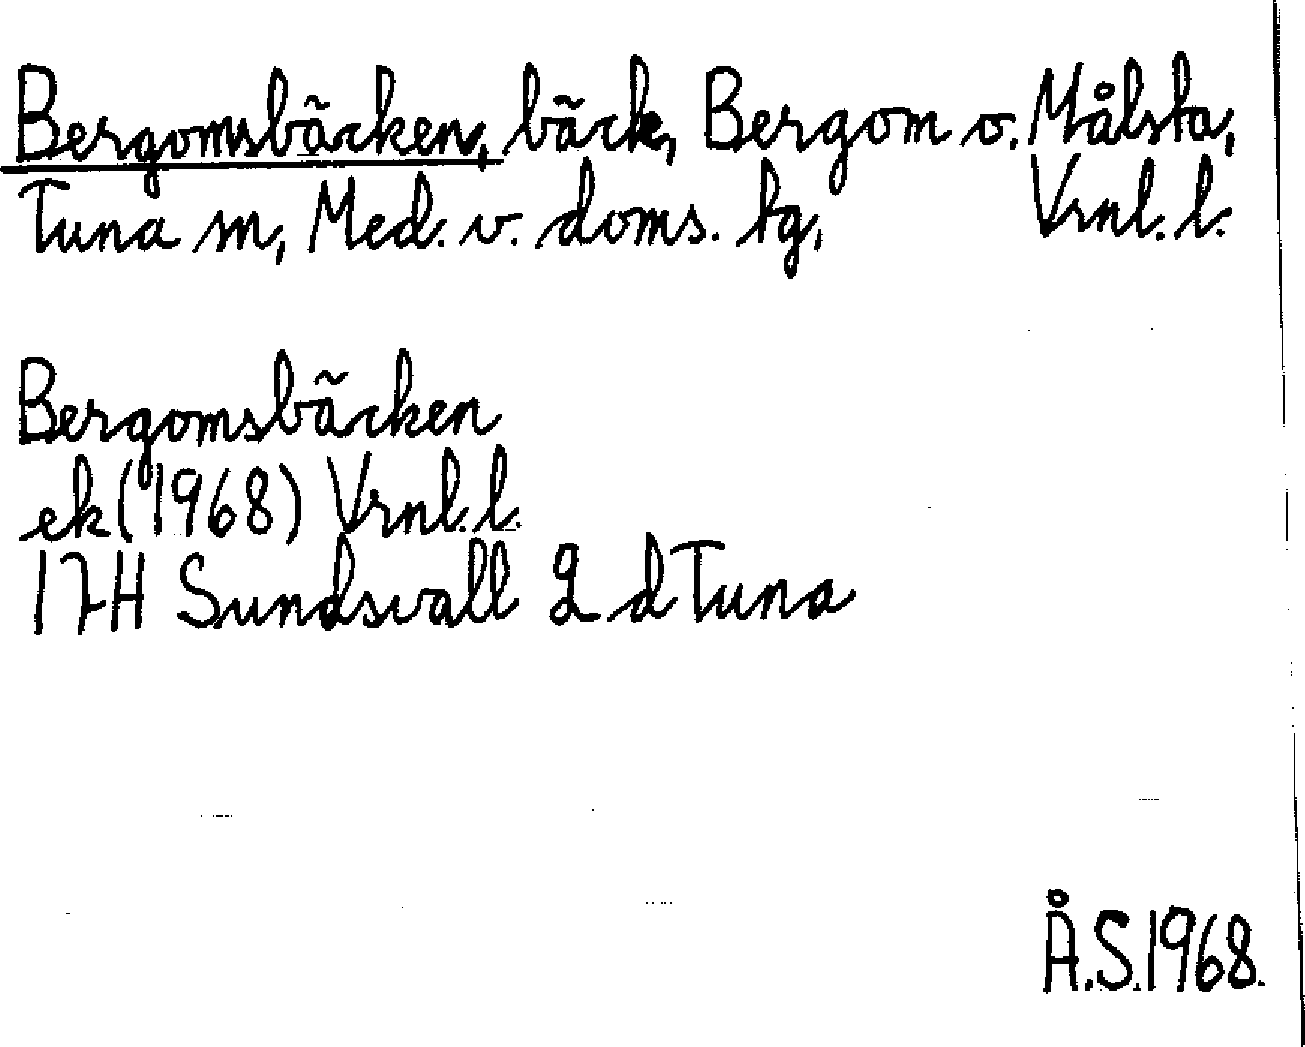 Bergomsbäcken, bäck, Bergom o. Målsta,
Tuna sn, Med. v. doms. tg, Vrnl. l.
Bergomsbäcken
ek (1968) Vrnl. l.
17H Sundsvall 2 d Tuna
Å.S. 1968.